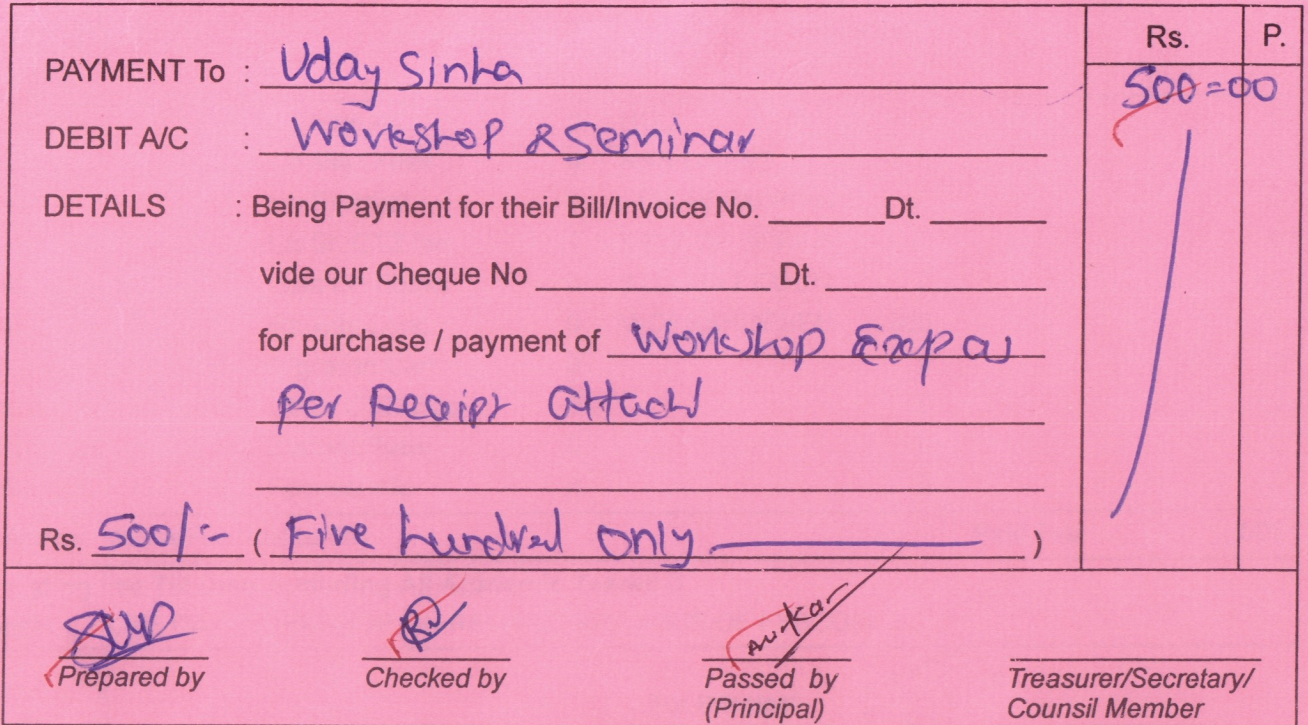 Rs. P.
PAYMENT To : Uday Sinha 500=00
DEBIT A/C : Workshop & Seminar
DETAILS : Being Payment for their Bill/Invoice No. Dt.
vide our Cheque No Dt.
for purchase / payment of Workshop Exp as
Per Receipt attachd
Rs. 500/- ( Five hundred only )
Prepared by Checked by Passed by Treasurer/Secretary/
(Principal) Counsil Member